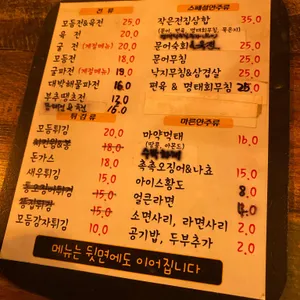 전 류
모둠전&육전 25.0
육 전 20.0
굴 전 (계절메뉴) 20.0
모둠전 18.0
굴파전 (계절메뉴) 19.0
대박해물파전 16.0
부추땡초전 12.0
16.0
튀 김 류
모듬튀김 20.0
18.0
돈가스 18.0
새우튀김 15.0
15.0
15.0
모듬감자튀김 10.0
스페셜안주류
작은전집삼합 35.0
문어숙회 25.0
문어무침 25.0
낙지무침&삼겹살 25.0
편육 & 명태회무침 25.0
마른안주류
마약먹태 16.0
(땅콩, 아몬드)
촉촉오징어&나쵸 15.0
아이스황도 8.0
얼큰라면 4.0
소면사리, 라면사리 2.0
공기밥, 두부추가 2.0
메뉴는 뒷면에도 이어집니다